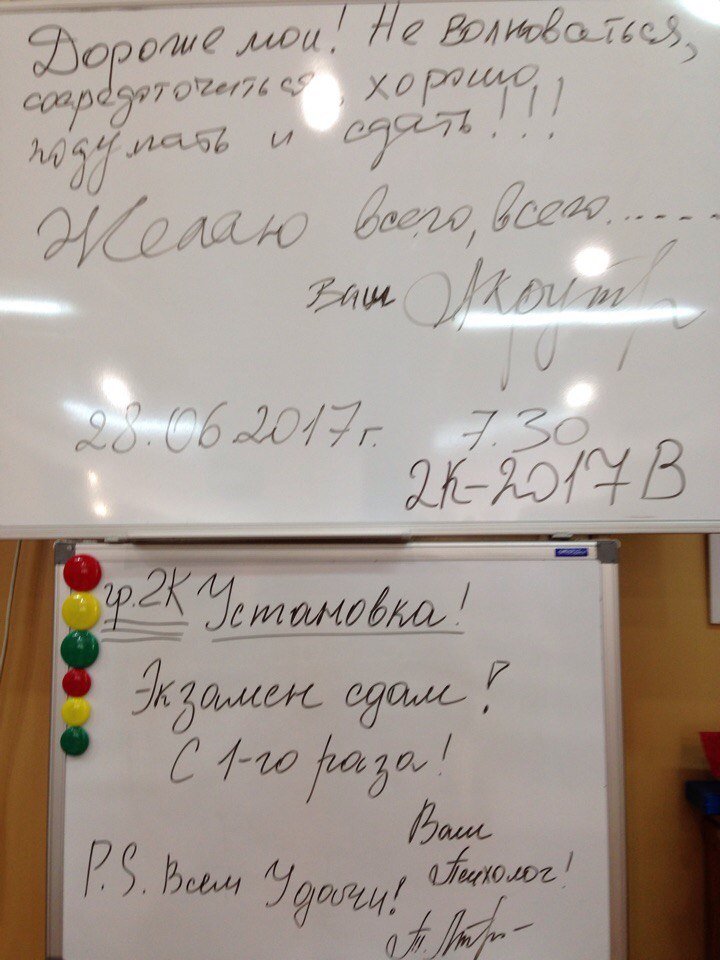 Дорогие мои! Не волноваться,
сосредоточиться, хорошо
подумать и сдать!!!
Желаю всего, всего......
Ваш
28.06.2017г. 7.30
2К-2017В
гр.2К Установка!
Экзамен сдам!
С 1-го раза!
Ваш
Психолог!
P.S. Всем Удачи!